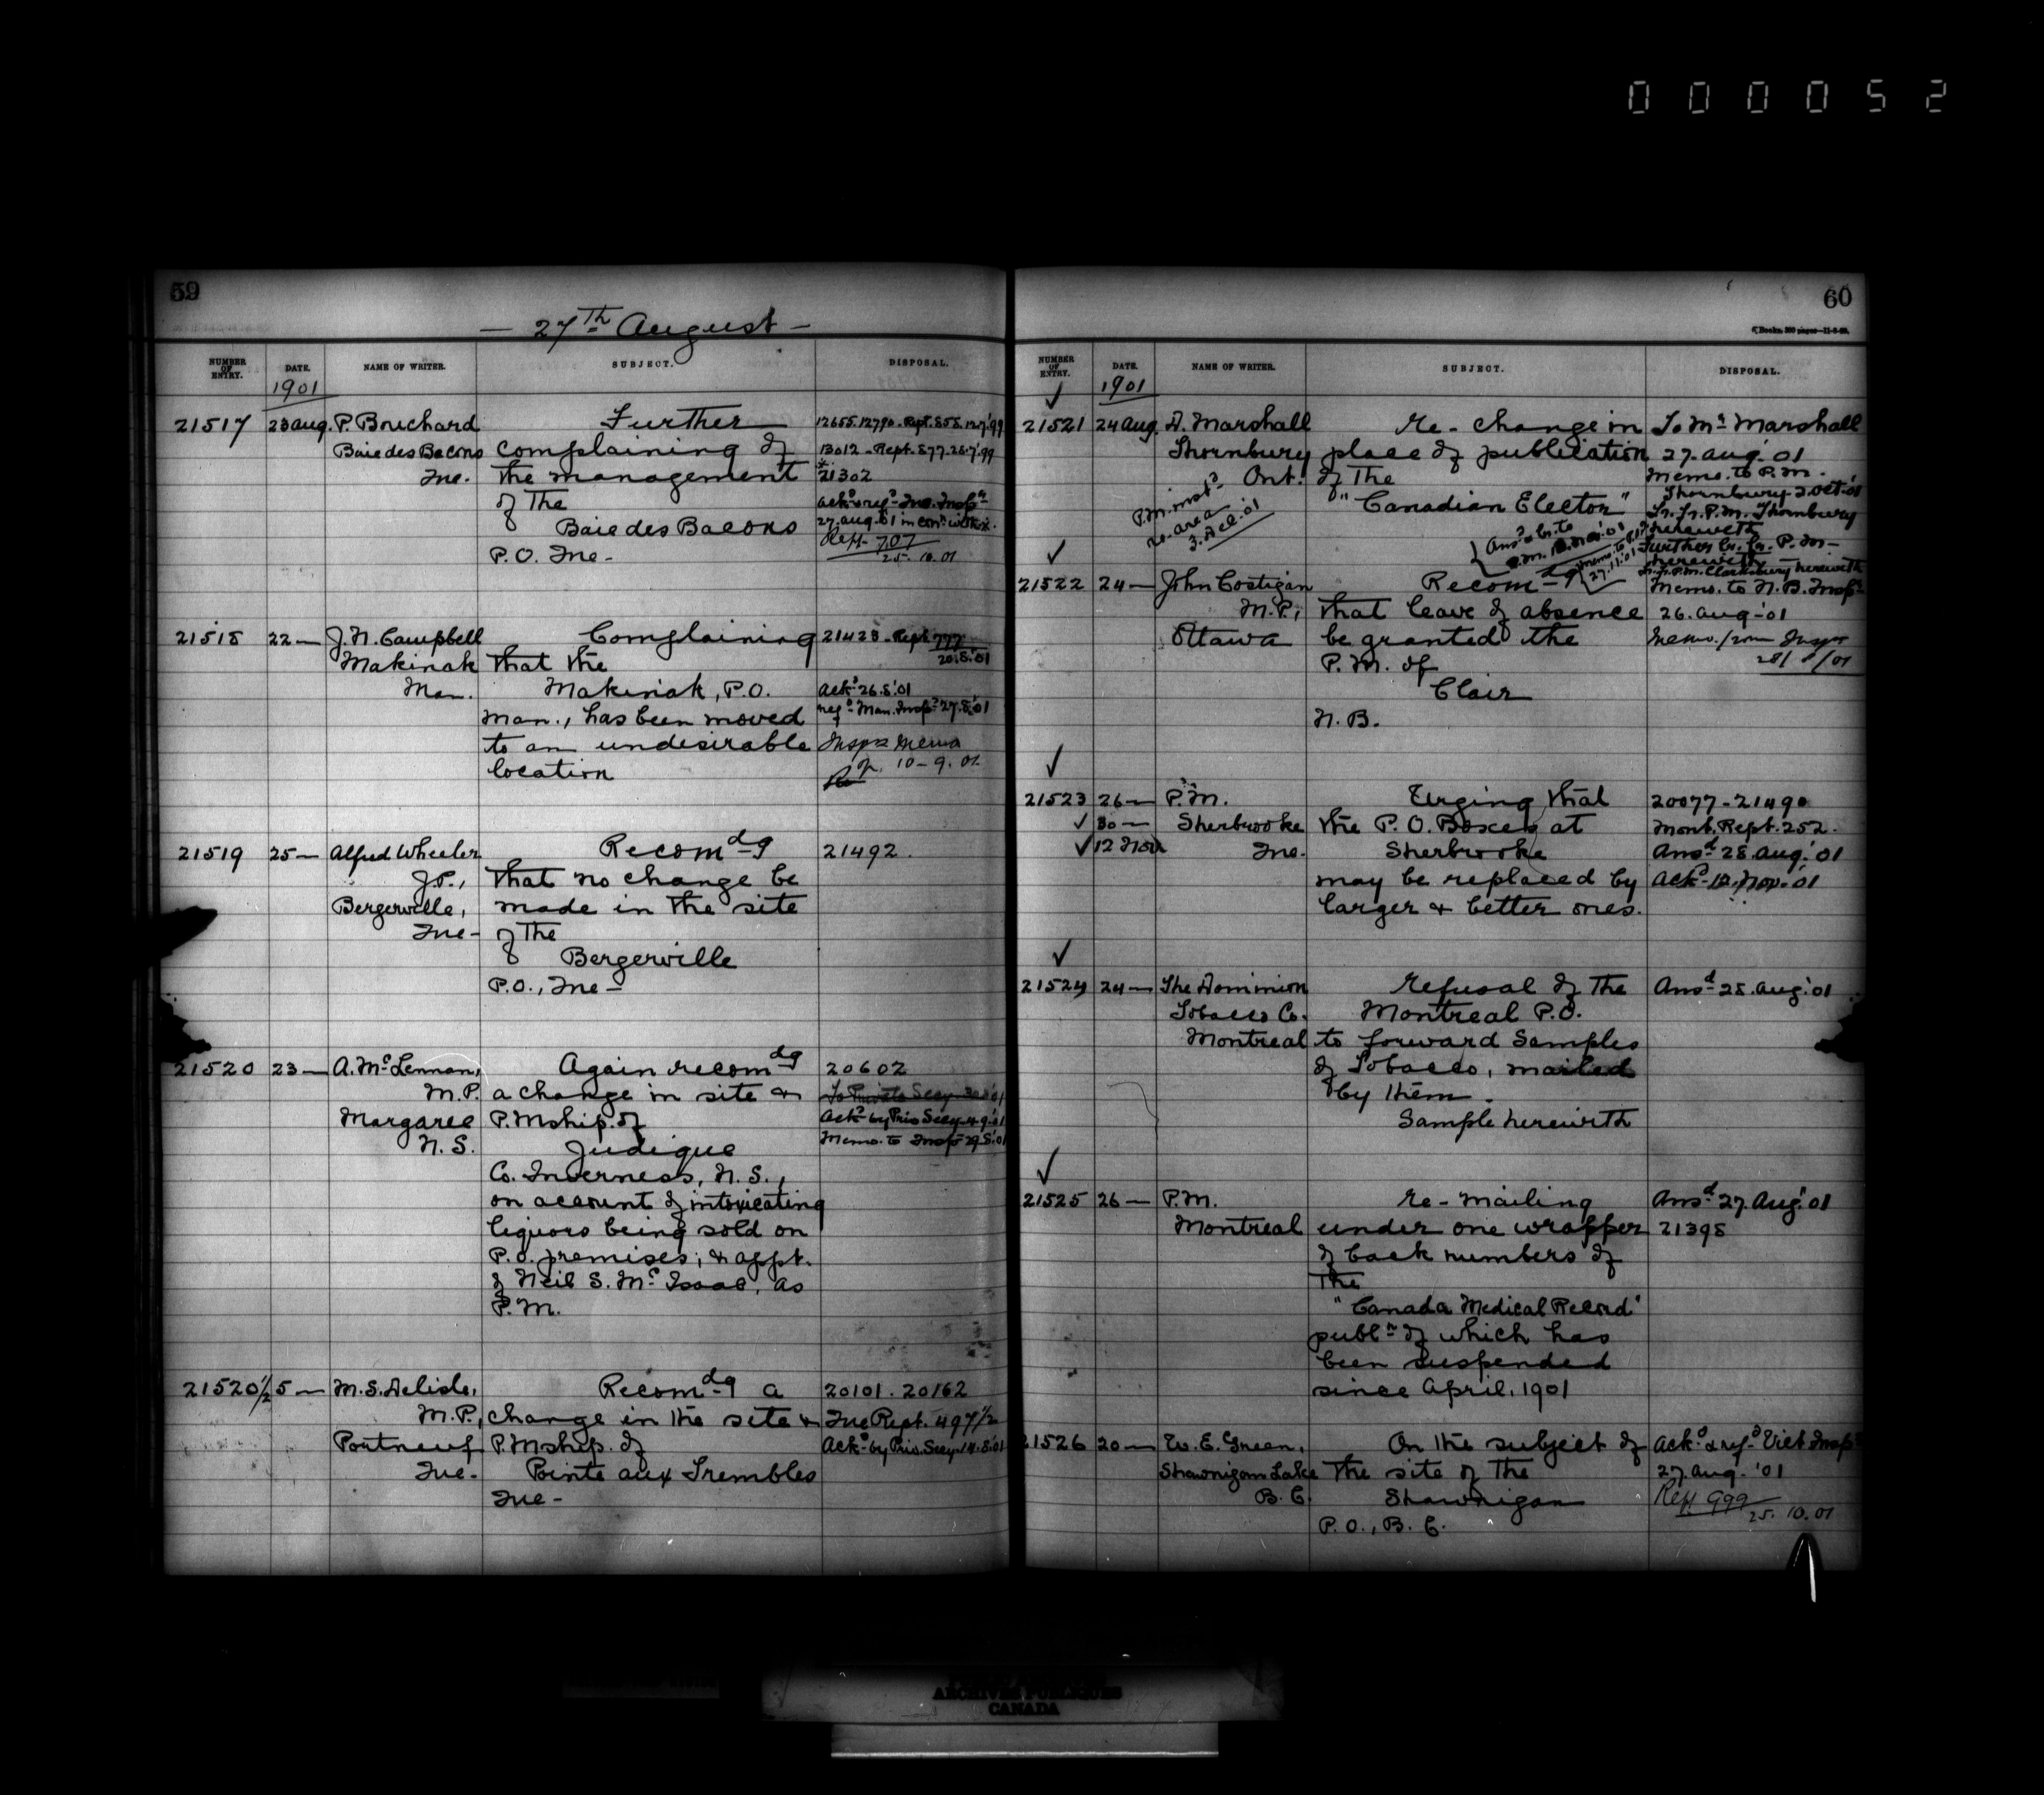 000052
59
— 27th August —
NUMBER OF ENTRY. DATE. NAME OF WRITER. SUBJECT. DISPOSAL.
1901
21517 23 Aug. P. Bouchard Further 12655.12790 - Rept. 858.12.7.'99
Baie des Bacons complaining of 13012 - Rept. 877.28.7.'99
Que. the management 21302
of the Ackd & refd Que. Inspr
Baie des Bacons 27. Aug. '01
P.O. Que - Rept 707
25.10.01
21518 22 — J. N. Campbell Complaining 21428 - Rept 777
Makinak that the 20.8.'01
Man. Makinak, P.O. Ackd 26.8.'01
Man., has been moved refd Man. Inspr 27.8.'01
to an undesirable Insprs memo
location 10-9.01
21519 25 — Alfred Wheeler Recomdg 21492.
J.P., that no change be
Bergerville, made in the site
Que - of the
Bergerville
P.O., Que -
21520 23 — A. McLennan, Again recomdg 20602
M.P. a change in site & To Private Secy
Margaree P.Mship. of Ackd by Priv Secy 4.9.'01
N.S. Judique Memo. to Inspr 29.8.'01
Co. Inverness, N.S.,
on account of intoxicating
liquors being sold on
P.O. premises; & appt.
of Neil S. McIsaac, as
P.M.
21520½ 5 — M.S. Delisle, Recomdg a 20101.20162
M.P., change in the site & Que Rept. 497½
Portneuf P.Mship. of Ackd by Priv. Secy 14.8.'01
Que - Pointe aux Trembles
Que -
60
NUMBER OF ENTRY. DATE. NAME OF WRITER. SUBJECT. DISPOSAL.
1901
21521 24 Aug. D. Marshall Re - change in To Mr Marshall
Thornbury place of publication 27. Aug. '01
Ont. of the Memo. to P.M.
"Canadian Elector" Thornbury 2. Oct. '01
Lr. fr. P.M. Thornbury
herewith
Further Lr. fr. P.M.
herewith
Lr. fr. P.M. Clarksburg herewith
P.M. instd
re area
3. Dec. '01
Memo. to
27.11.'01
21522 24 — John Costigan Recomdg Memo. to N.B. Inspr
M.P., that leave of absence 26. Aug - '01
Ottawa be granted the Memo. from Inspr
P.M. of 28/8/01
Clair
N.B.
21523 26 — P.M. Urging that 20077-21490
30 — Sherbrooke the P.O. Boxes at Mont. Rept. 252.
12 Nov Que. Sherbrooke Ansd 28. Aug. '01
may be replaced by Ackd 12. Nov. '01
larger & better ones.
21524 24 — The Dominion Refusal of the Ansd 28. Aug. '01
Tobacco Co. Montreal P.O.
Montreal to forward Samples
of Tobacco, mailed
by them.
Sample herewith
21525 26 — P.M. Re - mailing Ansd 27. Aug. '01
Montreal under one wrapper 21398
of back numbers of
the
"Canada Medical Record"
publn of which has
been suspended
since April, 1901
21526 20 — W. E. Green, On the subject of Ackd & refd Vict Inspr
Shawnigan Lake the site of the 27. Aug. '01
B.C. Shawnigan Rept 999
P.O., B.C. 25.10.01
ARCHIVES PUBLIQUES
CANADA